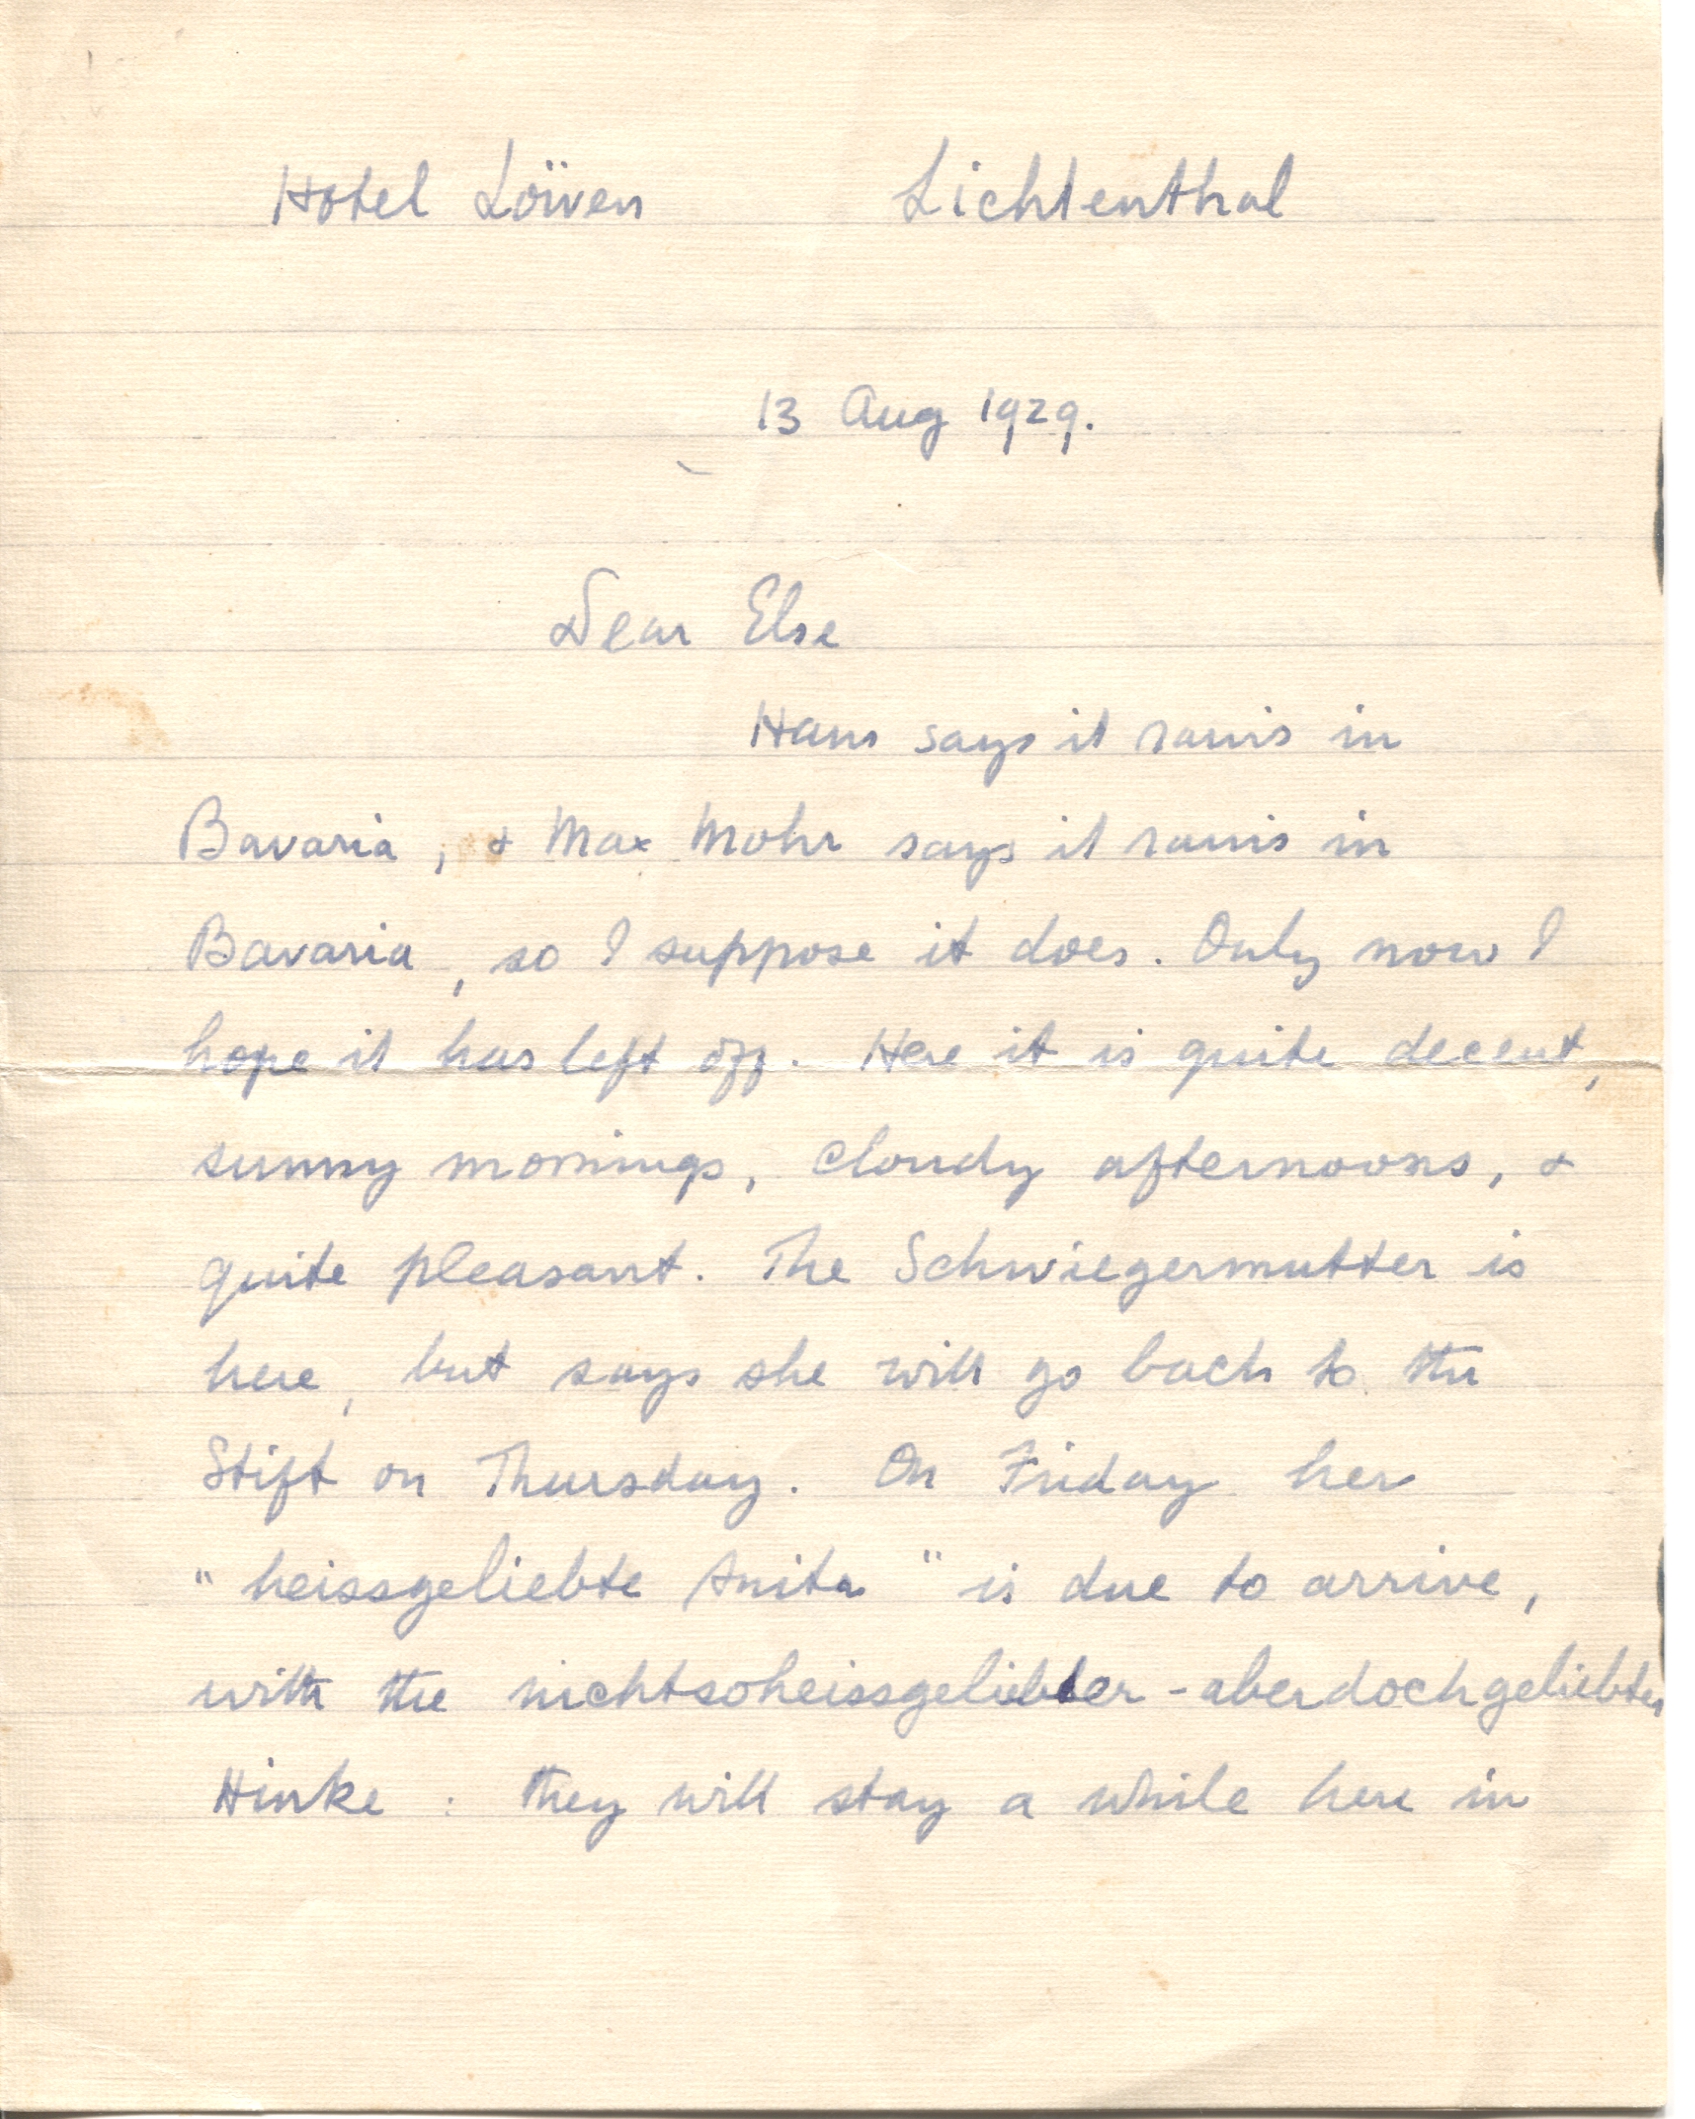 Hotel Löwen Lichtenthal
13 Aug 1929.
Dear Else
Hans says it rains in
Bavaria, & Max Mohr says it rains in
Bavaria, so I suppose it does. Only now I
hope it has left off. Here it is quite decent,
sunny mornings, cloudy afternoons, &
quite pleasant. The Schwiegermutter is
here, but says she will go back to the
Stift on Thursday. On Friday her
"heissgeliebte Anita" is due to arrive,
with the nichtsoheissgeliebter-aberdochgeliebter
Hinke : they will stay a while here in